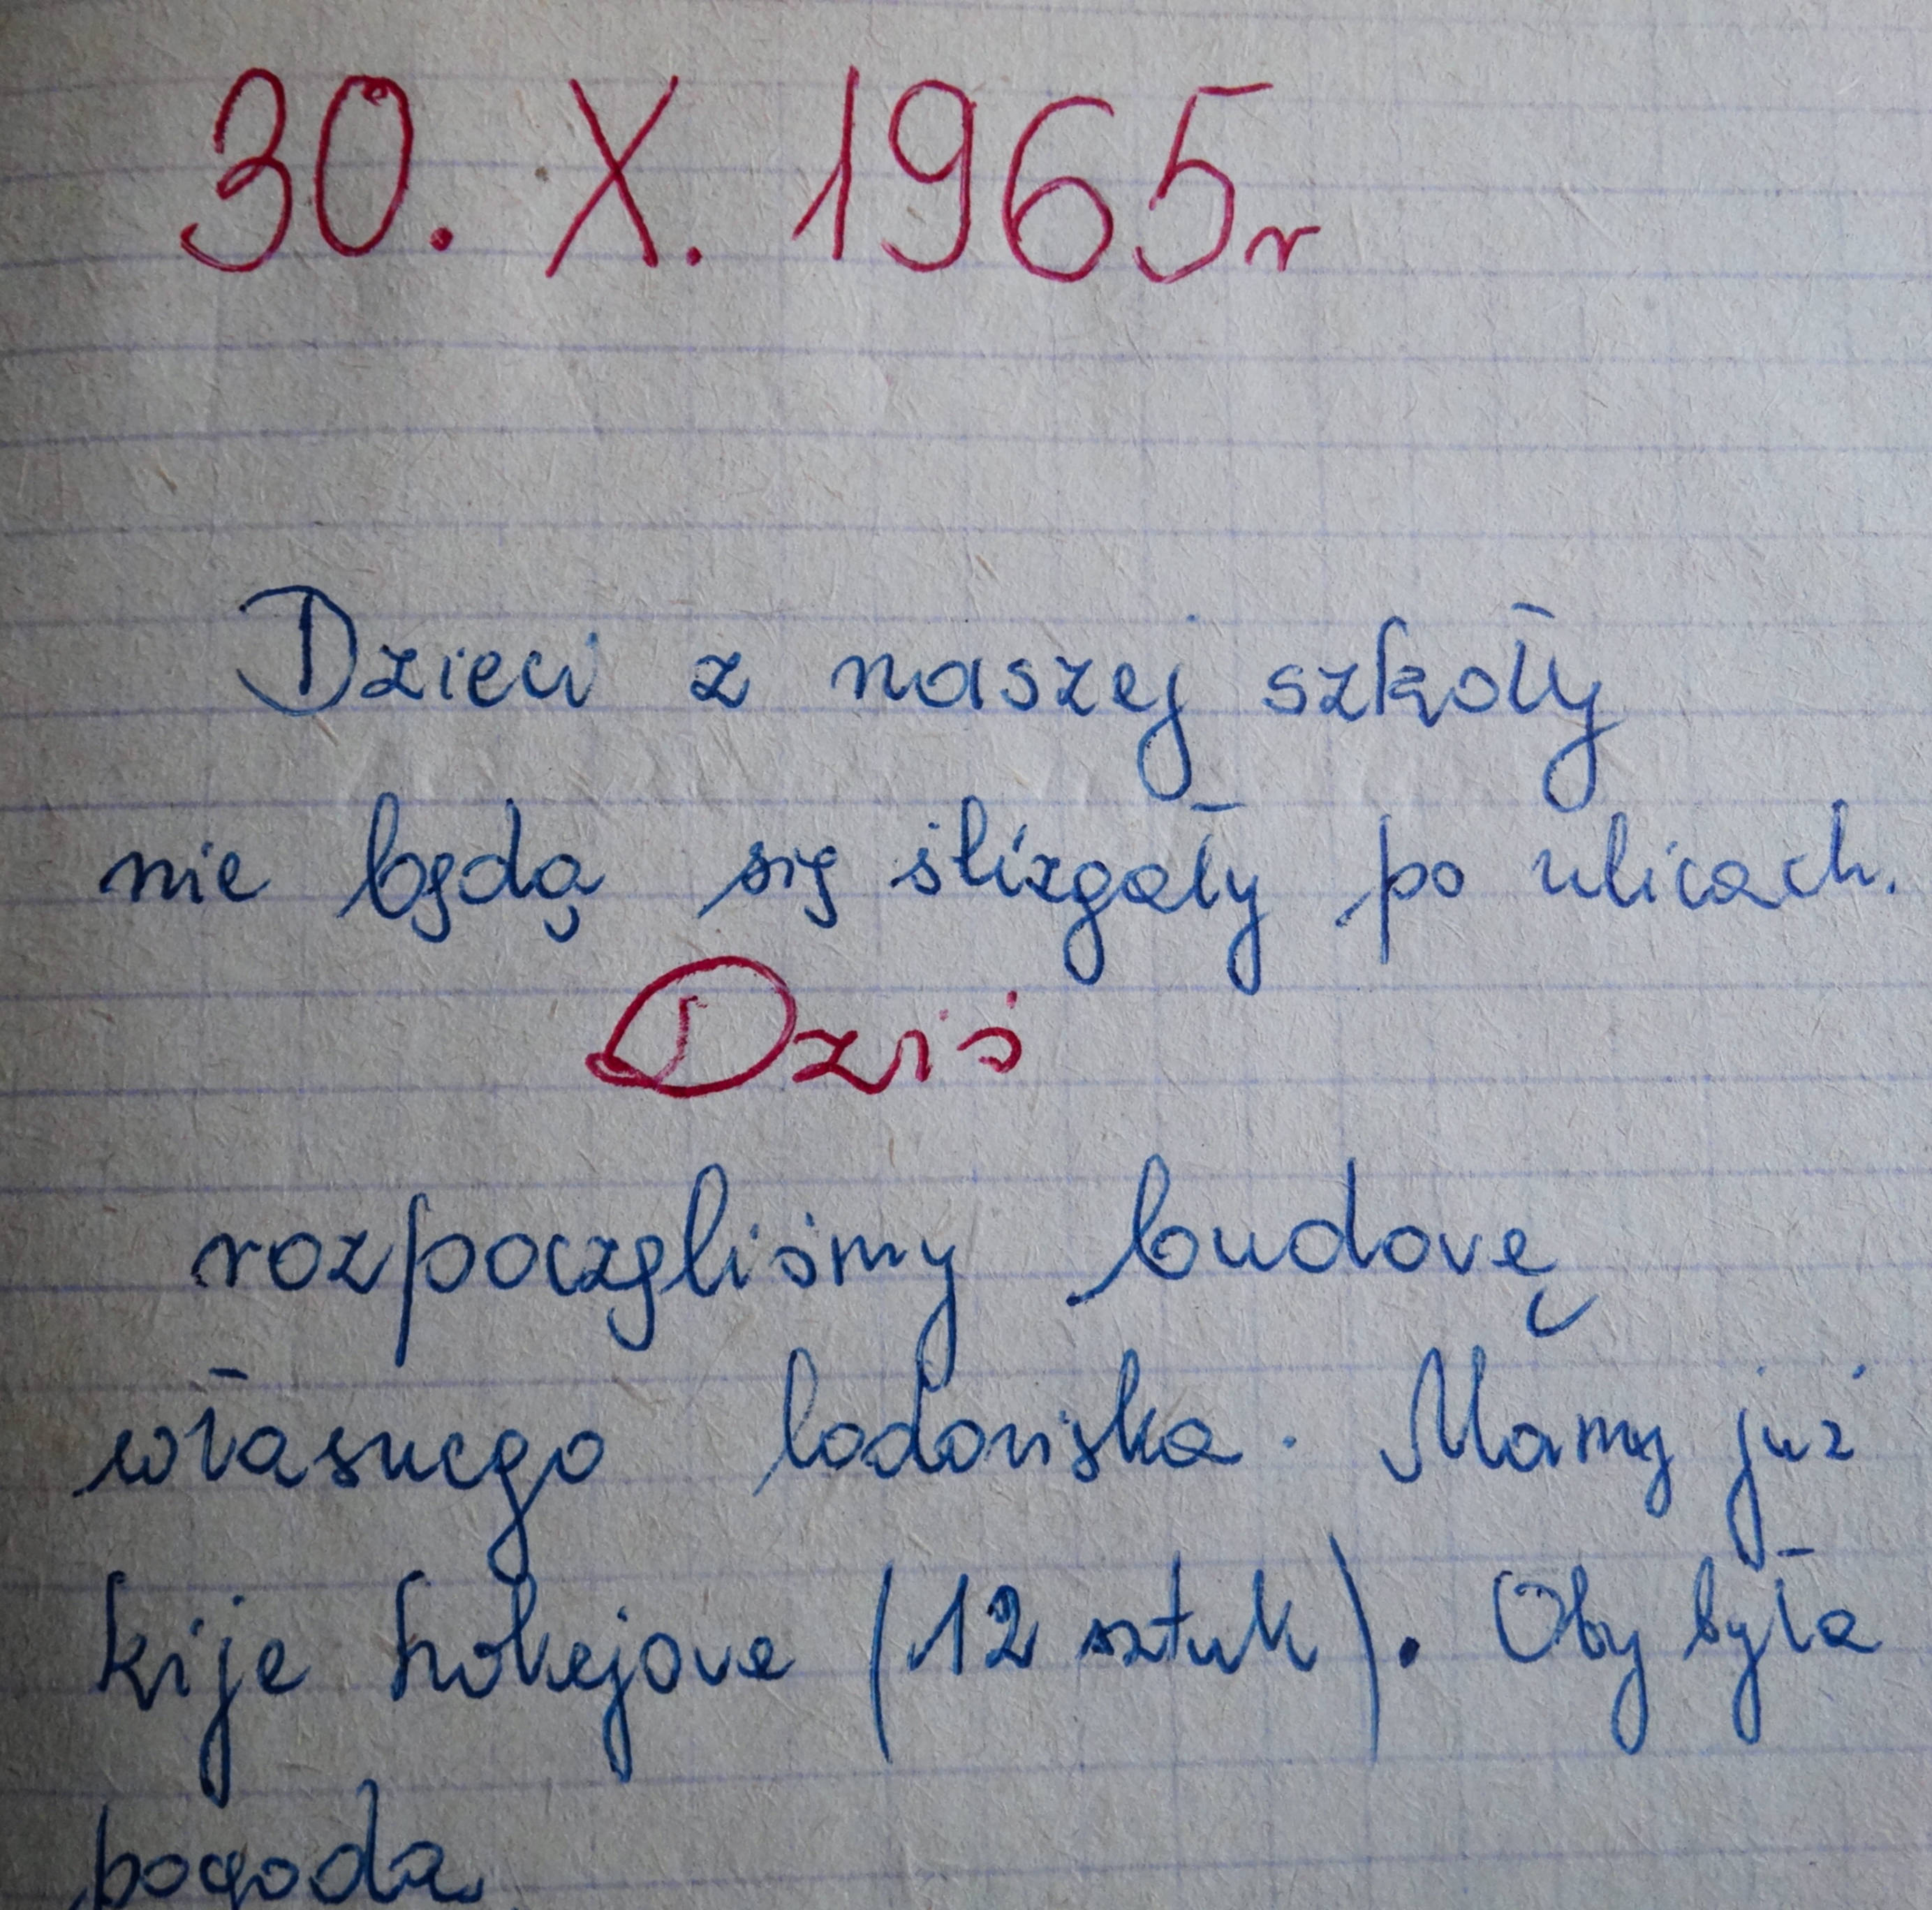 30. X. 1965r
Dzieci z naszej szkoły
nie będą się ślizgały po ulicach.
Dziś
rozpoczęliśmy budowę
własnego lodowiska. Mamy już
kije hokejowe (12 sztuk). Oby była
pogoda